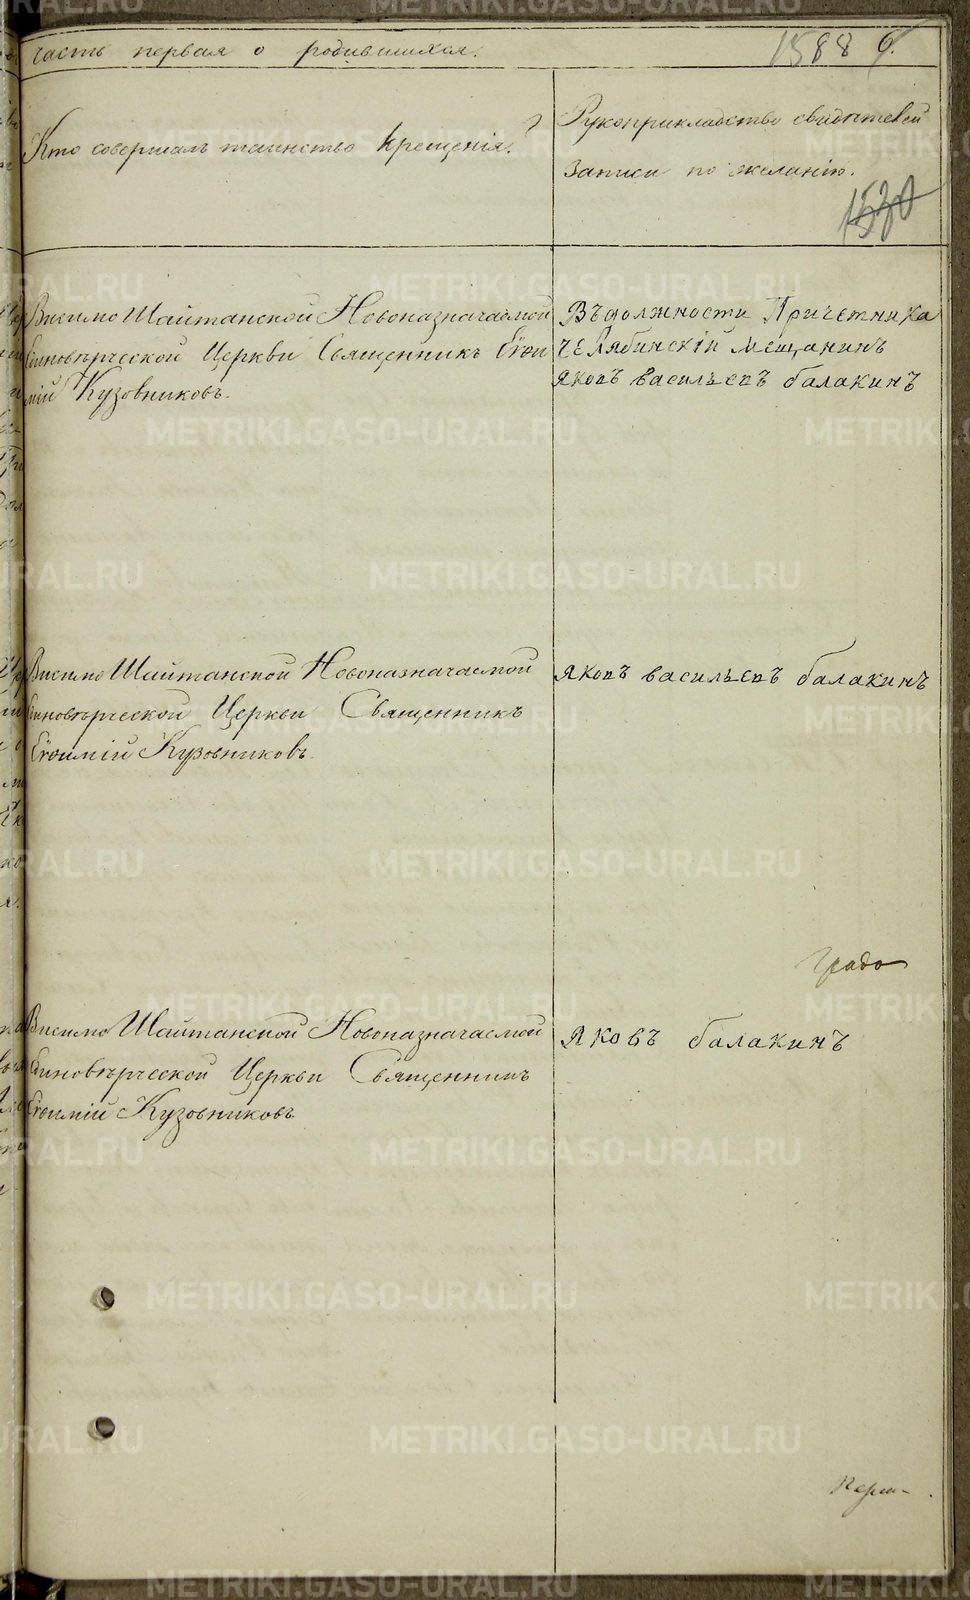 часть первая о родившихся.
1588 6.
Кто совершалъ таинство крещенія?
Рукоприкладство свидѣтелей
записи по желанію.
1530
Висимо Шайтанской Новоназначаемой
Единовѣрческой Церкви Священникъ Еѳи
мій Кузовниковъ.
Въ должности Причетника
челябинскій мещанинъ
яковъ васильевъ балакинъ
Висимо Шайтанской Новоназначаемой
Единовѣрческой Церкви Священникъ
Еѳимій Кузовниковъ.
яковъ васильевъ балакинъ
Градо
Висимо Шайтанской Новоназначаемой
Единовѣрческой Церкви Священникъ
Еѳимій Кузовниковъ
яковъ балакинъ
METRIKI.GASO-URAL.RU